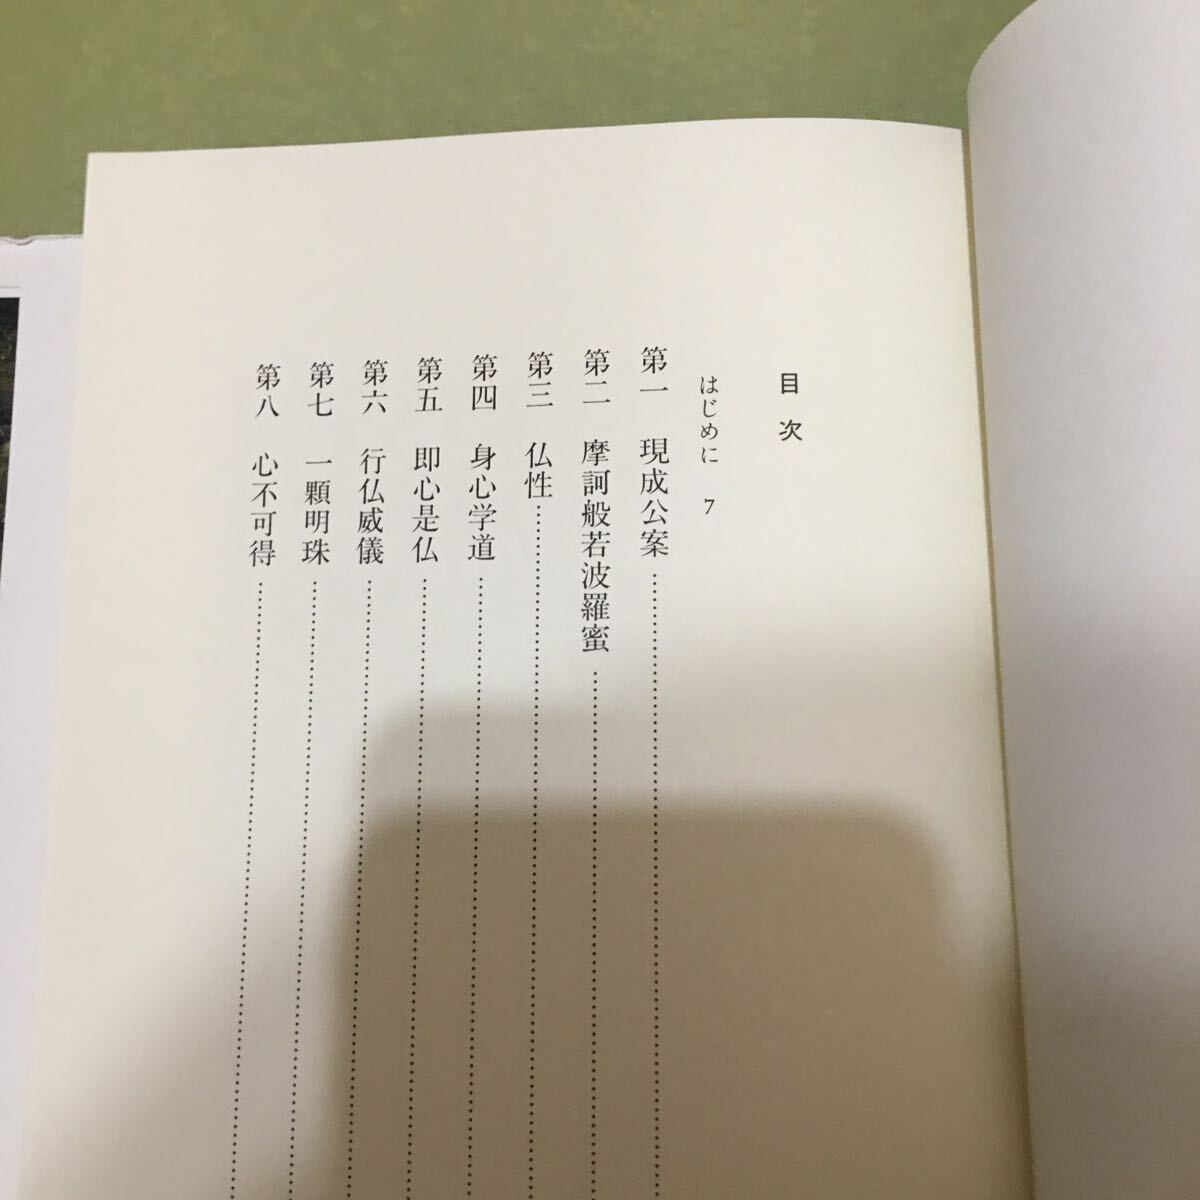 目次
はじめに 7
第一 現成公案……………………
第二 摩訶般若波羅蜜……………………
第三 仏性……………………
第四 身心学道……………………
第五 即心是仏……………………
第六 行仏威儀……………………
第七 一顆明珠……………………
第八 心不可得……………………